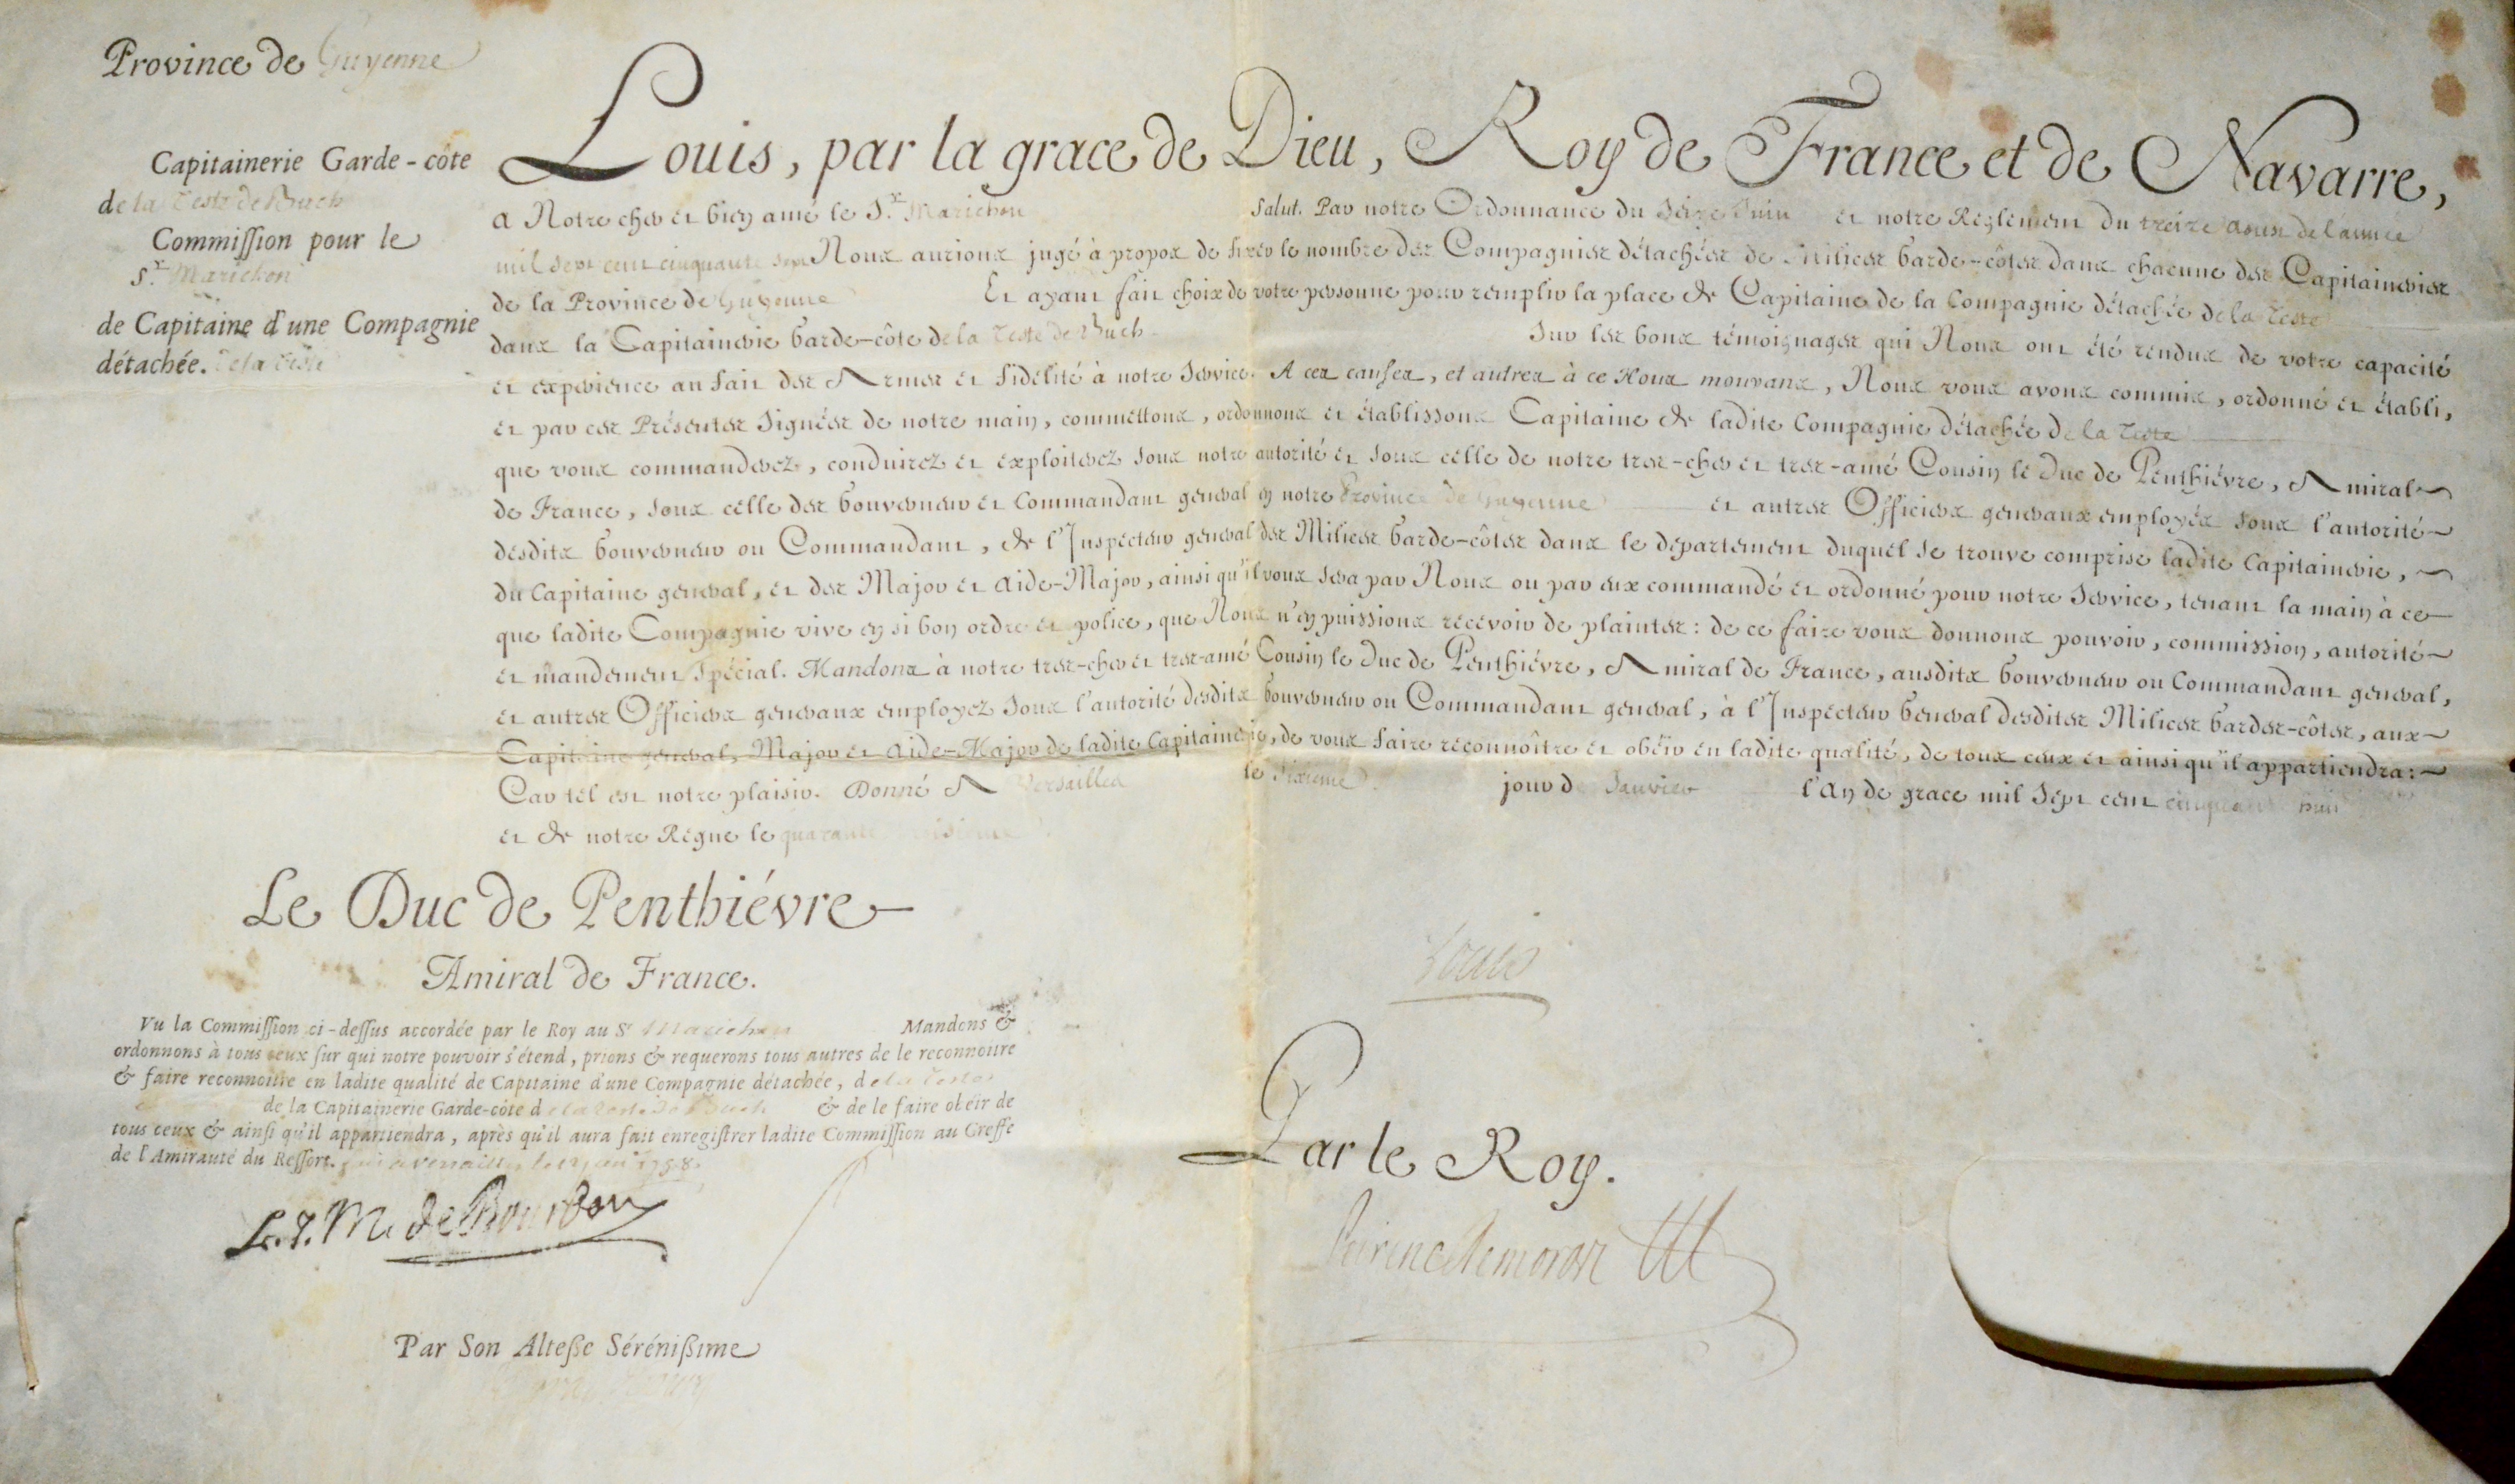 Province de Guyenne
Capitainerie Garde-côte
de la Teste de Buch
Commission pour le
S.r Marichon
de Capitaine d'une Compagnie
détachée. de la Teste
Louis, par la grace de Dieu, Roy de France et de Navarre,
A Notre cher et bien amé le S.r Marichon Salut. Par notre Ordonnance du Seize Juin et notre Reglement du treize Aoust de l'année
mil sept cent cinquante sept Nous aurions jugé à propos de fixer le nombre des Compagnies détachées de Milices Garde-côtes dans chacune des Capitaineries
de la Province de Guyenne Et ayant fait choix de votre personne pour remplir la place de Capitaine de la Compagnie détachée de la Teste
dans la Capitainerie Garde-côte de la Teste de Buch Sur les bons témoignages qui Nous ont été rendus de votre capacité
et expérience au fait des Armes et fidélité à notre Service. A ces causes, et autres à ce Nous mouvans, Nous vous avons commis, ordonné et établi,
et par ces Présentes Signées de notre main, commettons, ordonnons et établissons Capitaine de ladite Compagnie détachée de la Teste
que vous commanderez, conduirez et exploiterez sous notre autorité et sous celle de notre tres-cher et tres-amé Cousin le Duc de Penthiévre, Amiral
de France, sous celle des Gouverneur et Commandant general en notre Province de Guyenne et autres Officiers generaux employés sous l'autorité
desdits Gouverneur ou Commandant, de l'Inspecteur general des Milices Garde-côtes dans le département duquel se trouve comprise ladite Capitainerie,
du Capitaine general, et des Major et Aide-Major, ainsi qu'il vous sera par Nous ou par eux commandé et ordonné pour notre Service, tenant la main à ce
que ladite Compagnie vive en si bon ordre et police, que Nous n'en puissions recevoir de plaintes: de ce faire vous donnons pouvoir, commission, autorité
et mandement spécial. Mandons à notre tres-cher et tres-amé Cousin le Duc de Penthiévre, Amiral de France, ausdits Gouverneur ou Commandant general,
et autres Officiers generaux employez sous l'autorité desdits Gouverneur ou Commandant general, à l'Inspecteur General desdites Milices Gardes-côtes, aux
Capitaine general, Major et Aide-Major de ladite Capitainerie, de vous faire reconnoître et obéir en ladite qualité, de tous ceux et ainsi qu'il appartiendra:
Car tel est notre plaisir. Donné A Versailles le Sixieme jour de Janvier l'An de grace mil sept cent cinquante huit
et de notre Regne le quarante troisieme
Le Duc de Penthiévre
Amiral de France.
Vu la Commission ci-dessus accordée par le Roy au S.r Marichon Mandons &
ordonnons à tous ceux sur qui notre pouvoir s'étend, prions & requerons tous autres de le reconnoitre
& faire reconnoitre en ladite qualité de Capitaine d'une Compagnie détachée, de la Teste
de la Capitainerie Garde-côte de la Teste de Buch & de le faire obéir de
tous ceux & ainsi qu'il appartiendra, après qu'il aura fait enregistrer ladite Commission au Greffe
de l'Amirauté du Ressort. a Versailles le 1758
L. J. M. de Bourbon
Par Son Altesse Sérénissime
Louis
Par le Roy.
Peirenc de Moras